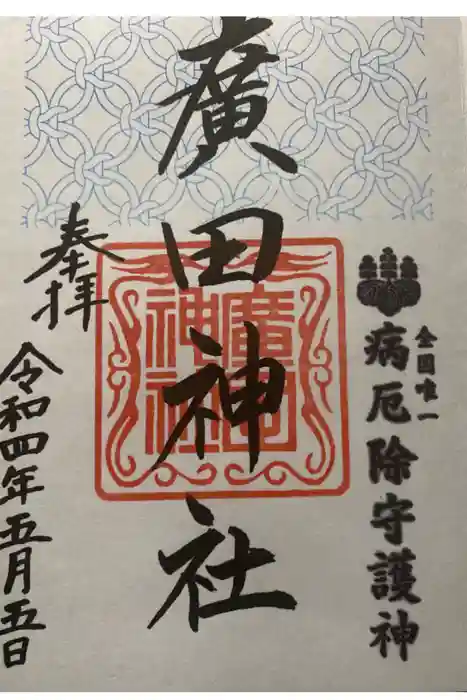 全国唯一
病厄除守護神
廣田神社
廣田
神社
奉拝
令和四年五月五日